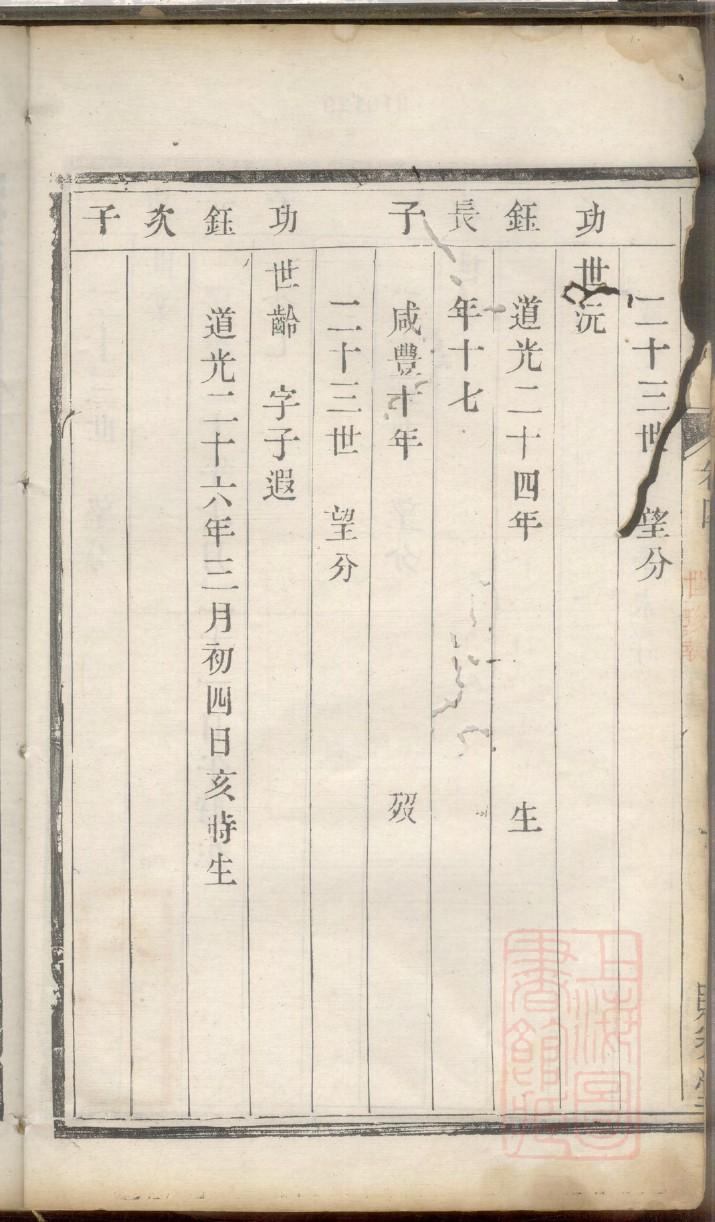 二十三世 望分
功 世沅
鈺 道光二十四年 生
長 年十七
子 咸豐十年 歿
二十三世 望分
功 世齡 字子遐
鈺 道光二十六年三月初四日亥時生
次
子
上海圖書館藏